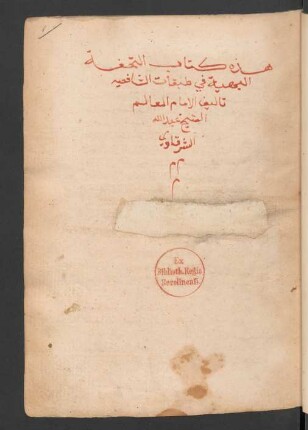 هذه كتاب التحفة
البهية في طبقات الشافعية
تأليف الامام العالم
الشيخ عبد الله
الشرقاوي
Ex
Biblioth. Regia
Berolinensi.